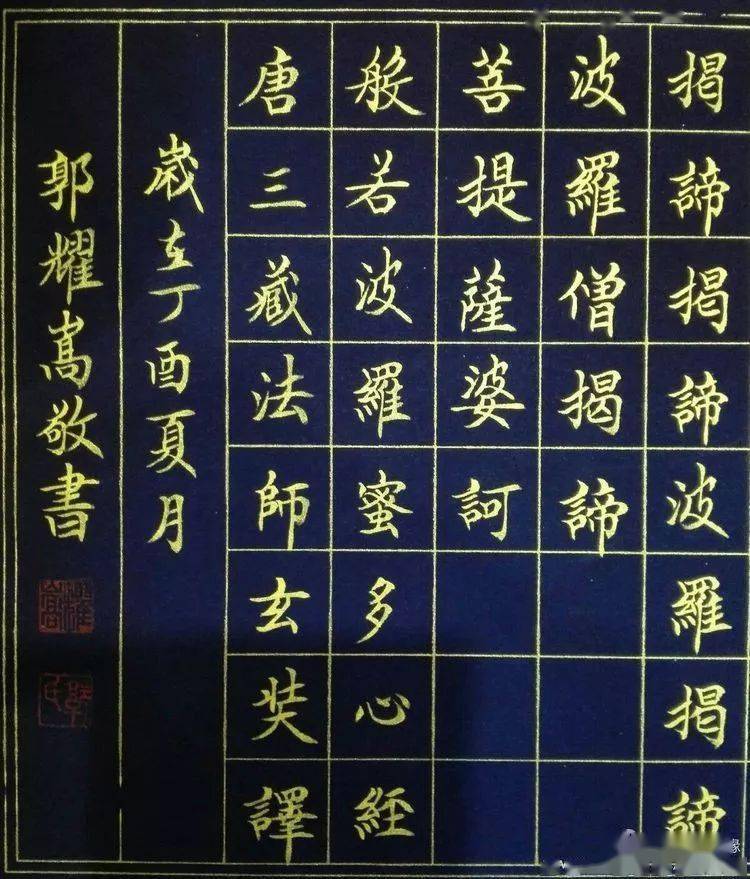 揭諦揭諦波羅揭諦
波羅僧揭諦
菩提薩婆訶
般若波羅蜜多心經
唐三藏法師玄奘譯
歲在丁酉夏月
郭耀嵩敬書